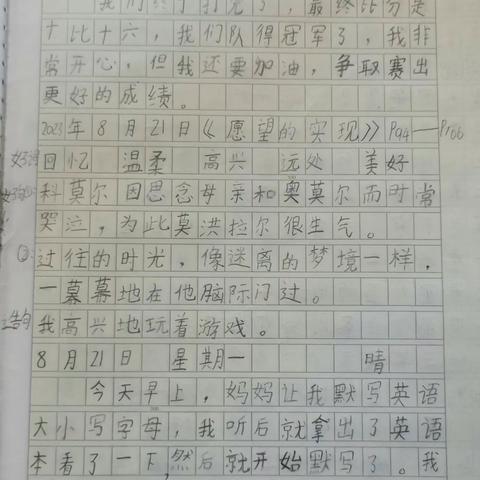 我们终于打完了，最终比分是
十比十六，我们队得冠军了，我非
常开心，但我还要加油，争取赛出
更好的成绩。
2023年8月21日《愿望的实现》P94—P106
回忆 温柔 高兴 远处 美好
科莫尔因思念母亲和奥莫尔而时常
哭泣，为此莫洪拉尔很生气。
②：过往的时光，像迷离的梦境一样，
一幕幕地在他脑际闪过。
我高兴地玩着游戏。
8月21日 星期一 晴
今天早上，妈妈让我默写英语
大小写字母，我听后就拿出了英语
本看了一下，然后就开始默写了。我